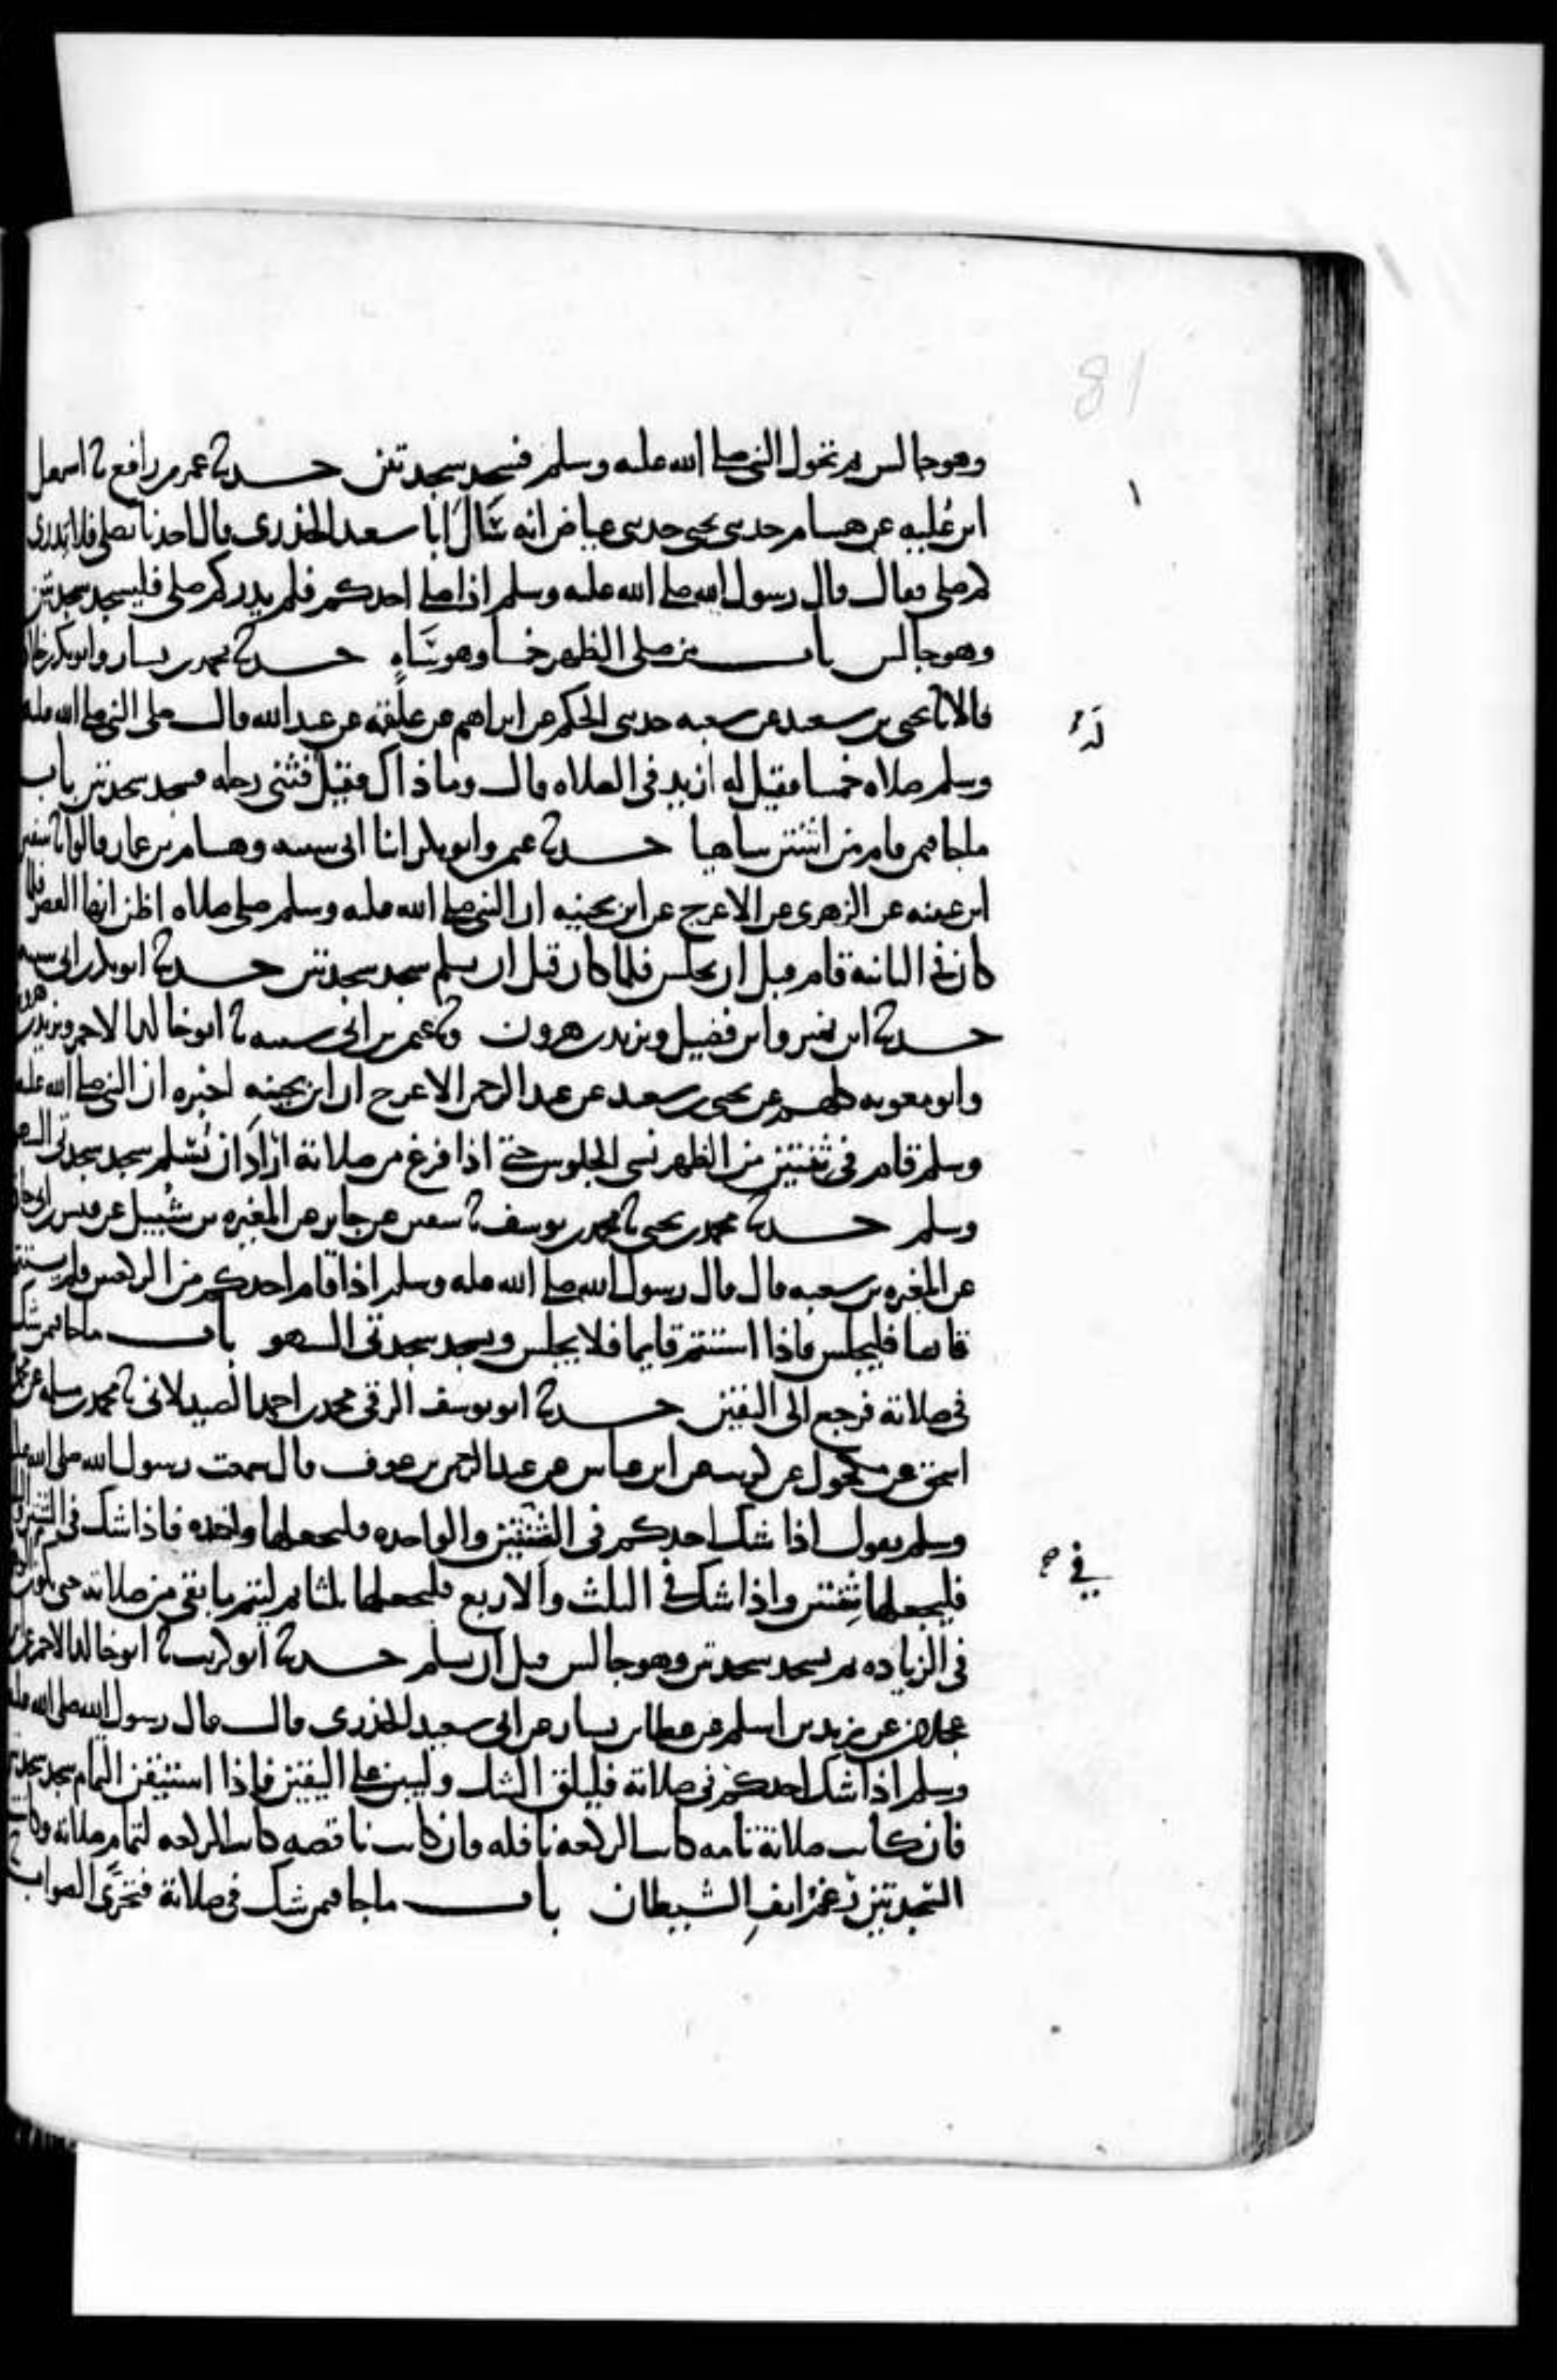 81
وهو جالس ثم تحول النبي صلى الله عليه وسلم فسجد سجدتين حدثنا عمرو بن رافع ثنا اسمعيل
١
ابن عُلية عن هشام حدثني يحيى حدثني عياض انه سَأَلَ ابا سعيد الخدري فقال احدنا يصلي فلا يدري
كم صلى فقال قال رسول الله صلى الله عليه وسلم اذا صلى احدكم فلم يدر كم صلى فليسجد سجدتين
وهو جالس باب من صلى الظهر خمسا وهو سَاهٍ حدثنا محمد بن بشار وابو بكر بن خلاد
قالا ثنا يحيى بن سعيد عن شعبه حدثني الحكم عن ابراهيم عن علقمه عن عبد الله قال صلى النبي صلى الله عليه
وسلم صلاه خمسا فقيل له ازيد في الصلاه قال وما ذاك فقيل فثنى رجله فسجد سجدتين باب
ما جا فيمن قام من اثنتين ساهيا حدثنا عثمن وابو بكر ابنا ابي شيبه وهشام بن عمار قالوا ثنا سفين
ابن عيينه عن الزهري عن الاعرج عن ابن بحينه ان النبي صلى الله عليه وسلم صلى صلاه اظن انها العصر فلما
كان في الثانية قام قبل ان يجلس فلما كان قبل ان يسلم سجد سجدتين حدثنا ابو بكر بن ابي شيبه
حدثنا ابن نمير وابن فضيل ويزيد بن هرون وثنا عثمن بن ابي شيبه ثنا ابو خالد الاحمر ويزيد بن هرون
وابو معويه كلهم عن يحيى بن سعيد عن عبد الرحمن الاعرج ان ابن بحينه اخبره ان النبي صلى الله عليه
وسلم قام في ثنتين من الظهر نسي الجلوس حتى اذا فرغ من صلاته ارَادَ ان يُسلم سجد سجدتي السهو
وسلم حدثنا محمد بن يحيى ثنا محمد بن يوسف ثنا سفين عن جابر عن المغيره بن شُبيل عن قيس بن ابي حازم
عن المغيره بن شعبه قال قال رسول الله صلى الله عليه وسلم اذا قام احدكم من الركعتين فلم يستتم
قايما فليجلس فاذا استتم قايما فلا يجلس ويسجد سجدتي السهو باب ما جا فيمن شك
في صلاته فرجع الى اليقين حدثنا ابو يوسف الرقي محمد بن احمد الصيدلاني ثنا محمد بن سلمه عن محمد
اسحق عن مكحول عن كريب عن ابن عباس عن عبد الرحمن بن عوف قال سمعت رسول الله صلى الله عليه
وسلم يقول اذا شك احدكم في الثنتين والواحده فليجعلها واحده فاذا شك في
في
فليجعلها ثنتين واذا شك في الثلث والاربع فليجعلها ثلثا ثم ليتم ما بقي من صلاته حتى يكون
في الزياده ثم يسجد سجدتين وهو جالس قبل ان يسلم حدثنا ابو كريب ثنا ابو خالد الاحمر عن ابن
عجلان عن زيد بن اسلم عن عطا بن يسار عن ابي سعيد الخدري قال قال رسول الله صلى الله عليه
وسلم اذا شك احدكم في صلاته فليلق الشك وليبن على اليقين فاذا استيقن التمام سجد سجدتين
فان كانت صلاته تامه كانت الركعه نافله وان كانت ناقصه كانت الركعه لتمام صلاته وكانت
السجدتين رَغم انفِ الشيطان باب ما جا فيمن شك في صلاته فتحرَّى الصواب